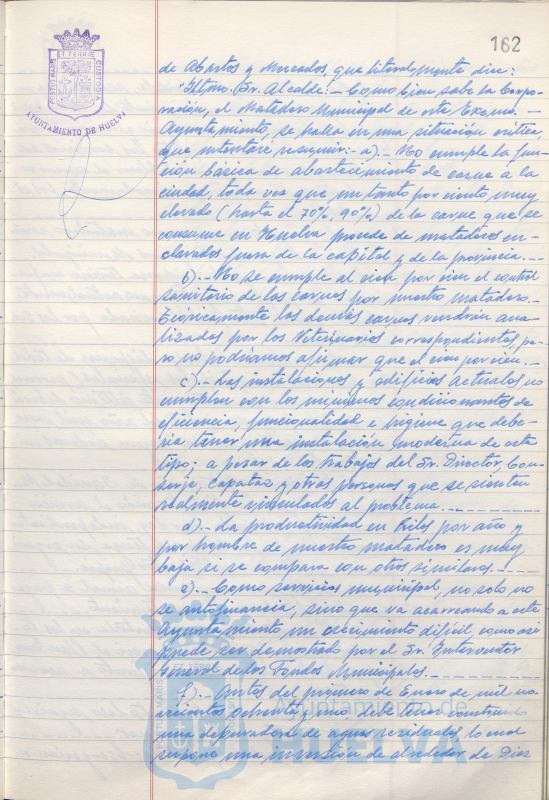 162
PORTUS MARIS ET TERRAE CUSTODIA
AYUNTAMIENTO DE HUELVA
de Abastos y Mercados, que literalmente dice:
"Iltmo. Sr. Alcalde:- Como bien sabe la Corpo-
ración, el Matadero Municipal de este Excmo.-
Ayuntamiento, se halla en una situación crítica,
que intentaré resumir:- a).- No cumple la fun-
ción básica de abastecimiento de carne a la
ciudad, toda vez que un tanto por ciento muy
elevado (hasta el 70%, 90%) de la carne que se
consume en Huelva procede de mataderos en-
clavados fuera de la capital y de la provincia.-
b).- No se cumple al cien por cien el control
sanitario de las carnes por nuestro matadero.-
Teóricamente las demás carnes vendrán ana-
lizadas por los Veterinarios correspondientes, pe-
ro no podríamos afirmar que el cien por cien.-
c).- Las instalaciones y edificios actuales no
cumplen con los mínimos condicionantes de
eficiencia, funcionalidad e higiene que debe-
ría tener una instalación moderna de este
tipo; a pesar de los trabajos del Sr. Director, Con-
serje, capataz y otras personas que se sienten
realmente vinculados al problema.-
d).- La productividad en Kilos por año y
por hombre de nuestro matadero es muy
baja si se compara con otros similares.-
e).- Como servicio municipal, no solo no
se autofinancia, sino que va acarreando a este
Ayuntamiento un crecimiento difícil, como así
puede ser demostrado por el Sr. Interventor
General de los Fondos Municipales.
f).- Antes del primero de Enero de mil no-
vecientos ochenta y uno, debe tener construida
una depuradora de aguas residuales lo cual
supone una inversión de alrededor de Diez
Ayuntamiento de
HUELVA